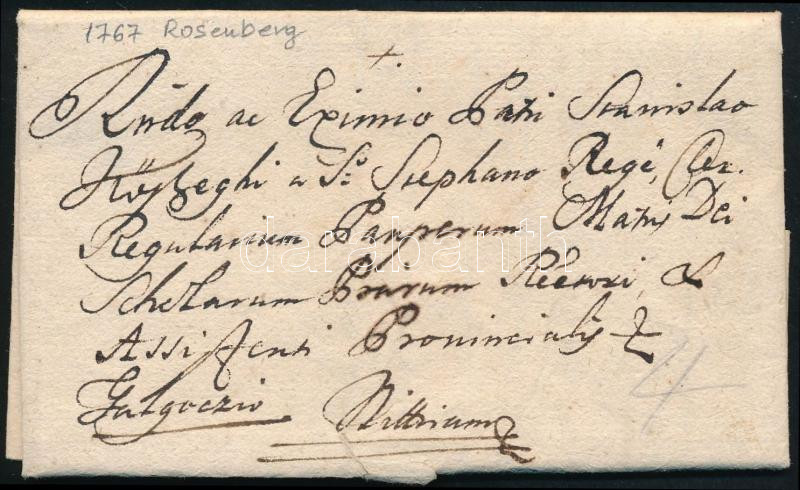 1767 Rosenberg
+
Rndo ac Eximio Patri Stanislao
Kőszeghi a S: Stephano Rege, Cler.
Regularium Pauperum Matris Dei
Scholarum Piarum Rectori, &
Assistenti Provincialis
Galgoczio Nittriam
4
darabanth